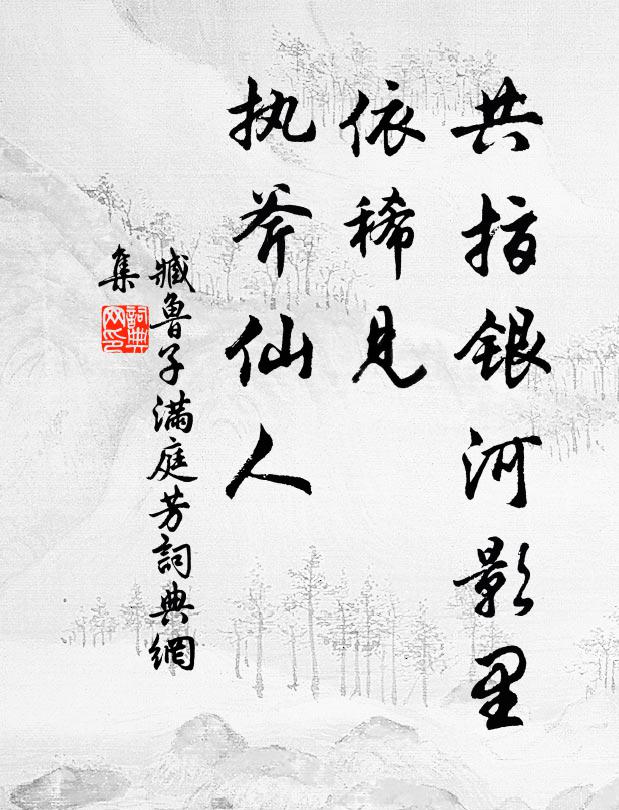 共指银河影里
依稀见
执斧仙人
臧鲁子满庭芳詞典網
集
詞典
网印